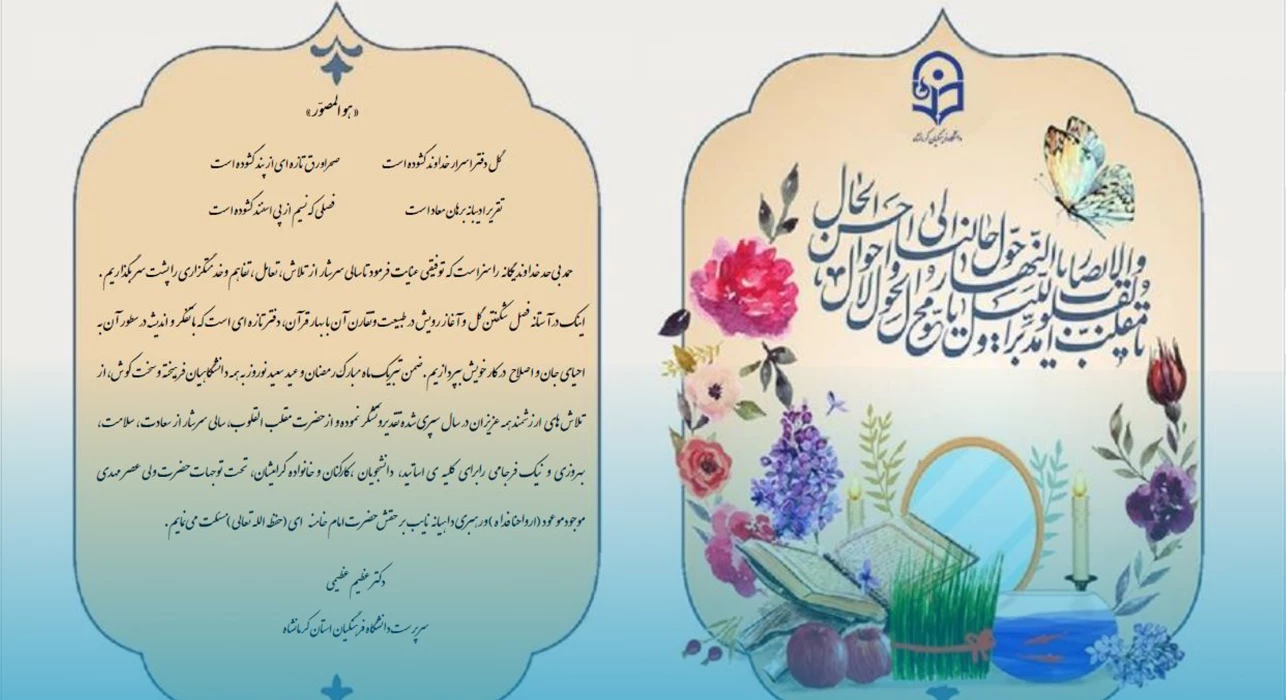 دانشگاه فرهنگیان کرمانشاه
یا مقلب القلوب و الابصار
یا مدبر اللیل و النهار
یا محول الحول و الاحوال
حول حالنا الی احسن الحال
«هو المصوّر»
گل دفتر اسرار خداوند گشوده است صحرا ورق تازه‌ای از بند گشوده است
تقریر ادیبانه برهان معاد است فصلی که نسیم از پی اسفند گشوده است
حمد بی حد خداوند یگانه را سزاست که توفیقی عنایت فرمود تا سالی سرشار از تلاش، تعامل، تفاهم و خدمتگزاری را پشت سر بگذاریم.
اینک در آستانه فصل شکفتن گل و آغاز رویش در طبیعت و تقارن آن با بهار قرآن، دفتر تازه ای است که با تفکر و اندیشه در سطور آن به
احیای جان و اصلاح در کار خویش بپردازیم. ضمن تبریک ماه مبارک رمضان و عید سعید نوروز به همه دانشگاهیان فریخته و سخت کوش، از
تلاش های ارزشمند همه عزیزان در سال سپری شده تقدیر و تشکر نموده و از حضرت مقلب القلوب، سالی سرشار از سعادت، سلامت،
بهروزی و نیک فرجامی را برای کلیه ی اساتید، دانشجویان، کارکنان و خانواده گرامیشان، تحت توجهات حضرت ولی عصر مهدی
موجود موعود (ارواحنا فداه) و رهبری داهیانه نایب بر حقش حضرت امام خامنه ای (حفظه الله تعالی) مسئلت می نمایم.
دکتر عظیم عظیمی
سرپرست دانشگاه فرهنگیان استان کرمانشاه